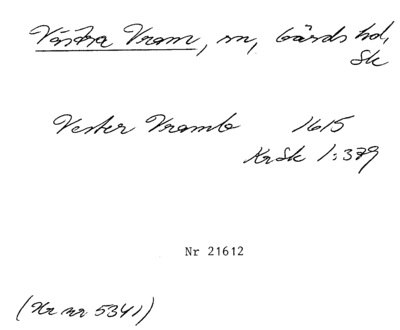 Västra Vram, sn, Gärds hd,
Sk
Vester Vramb 1615
KrSk 1:379
Nr 21612
(Hr nr 5341)